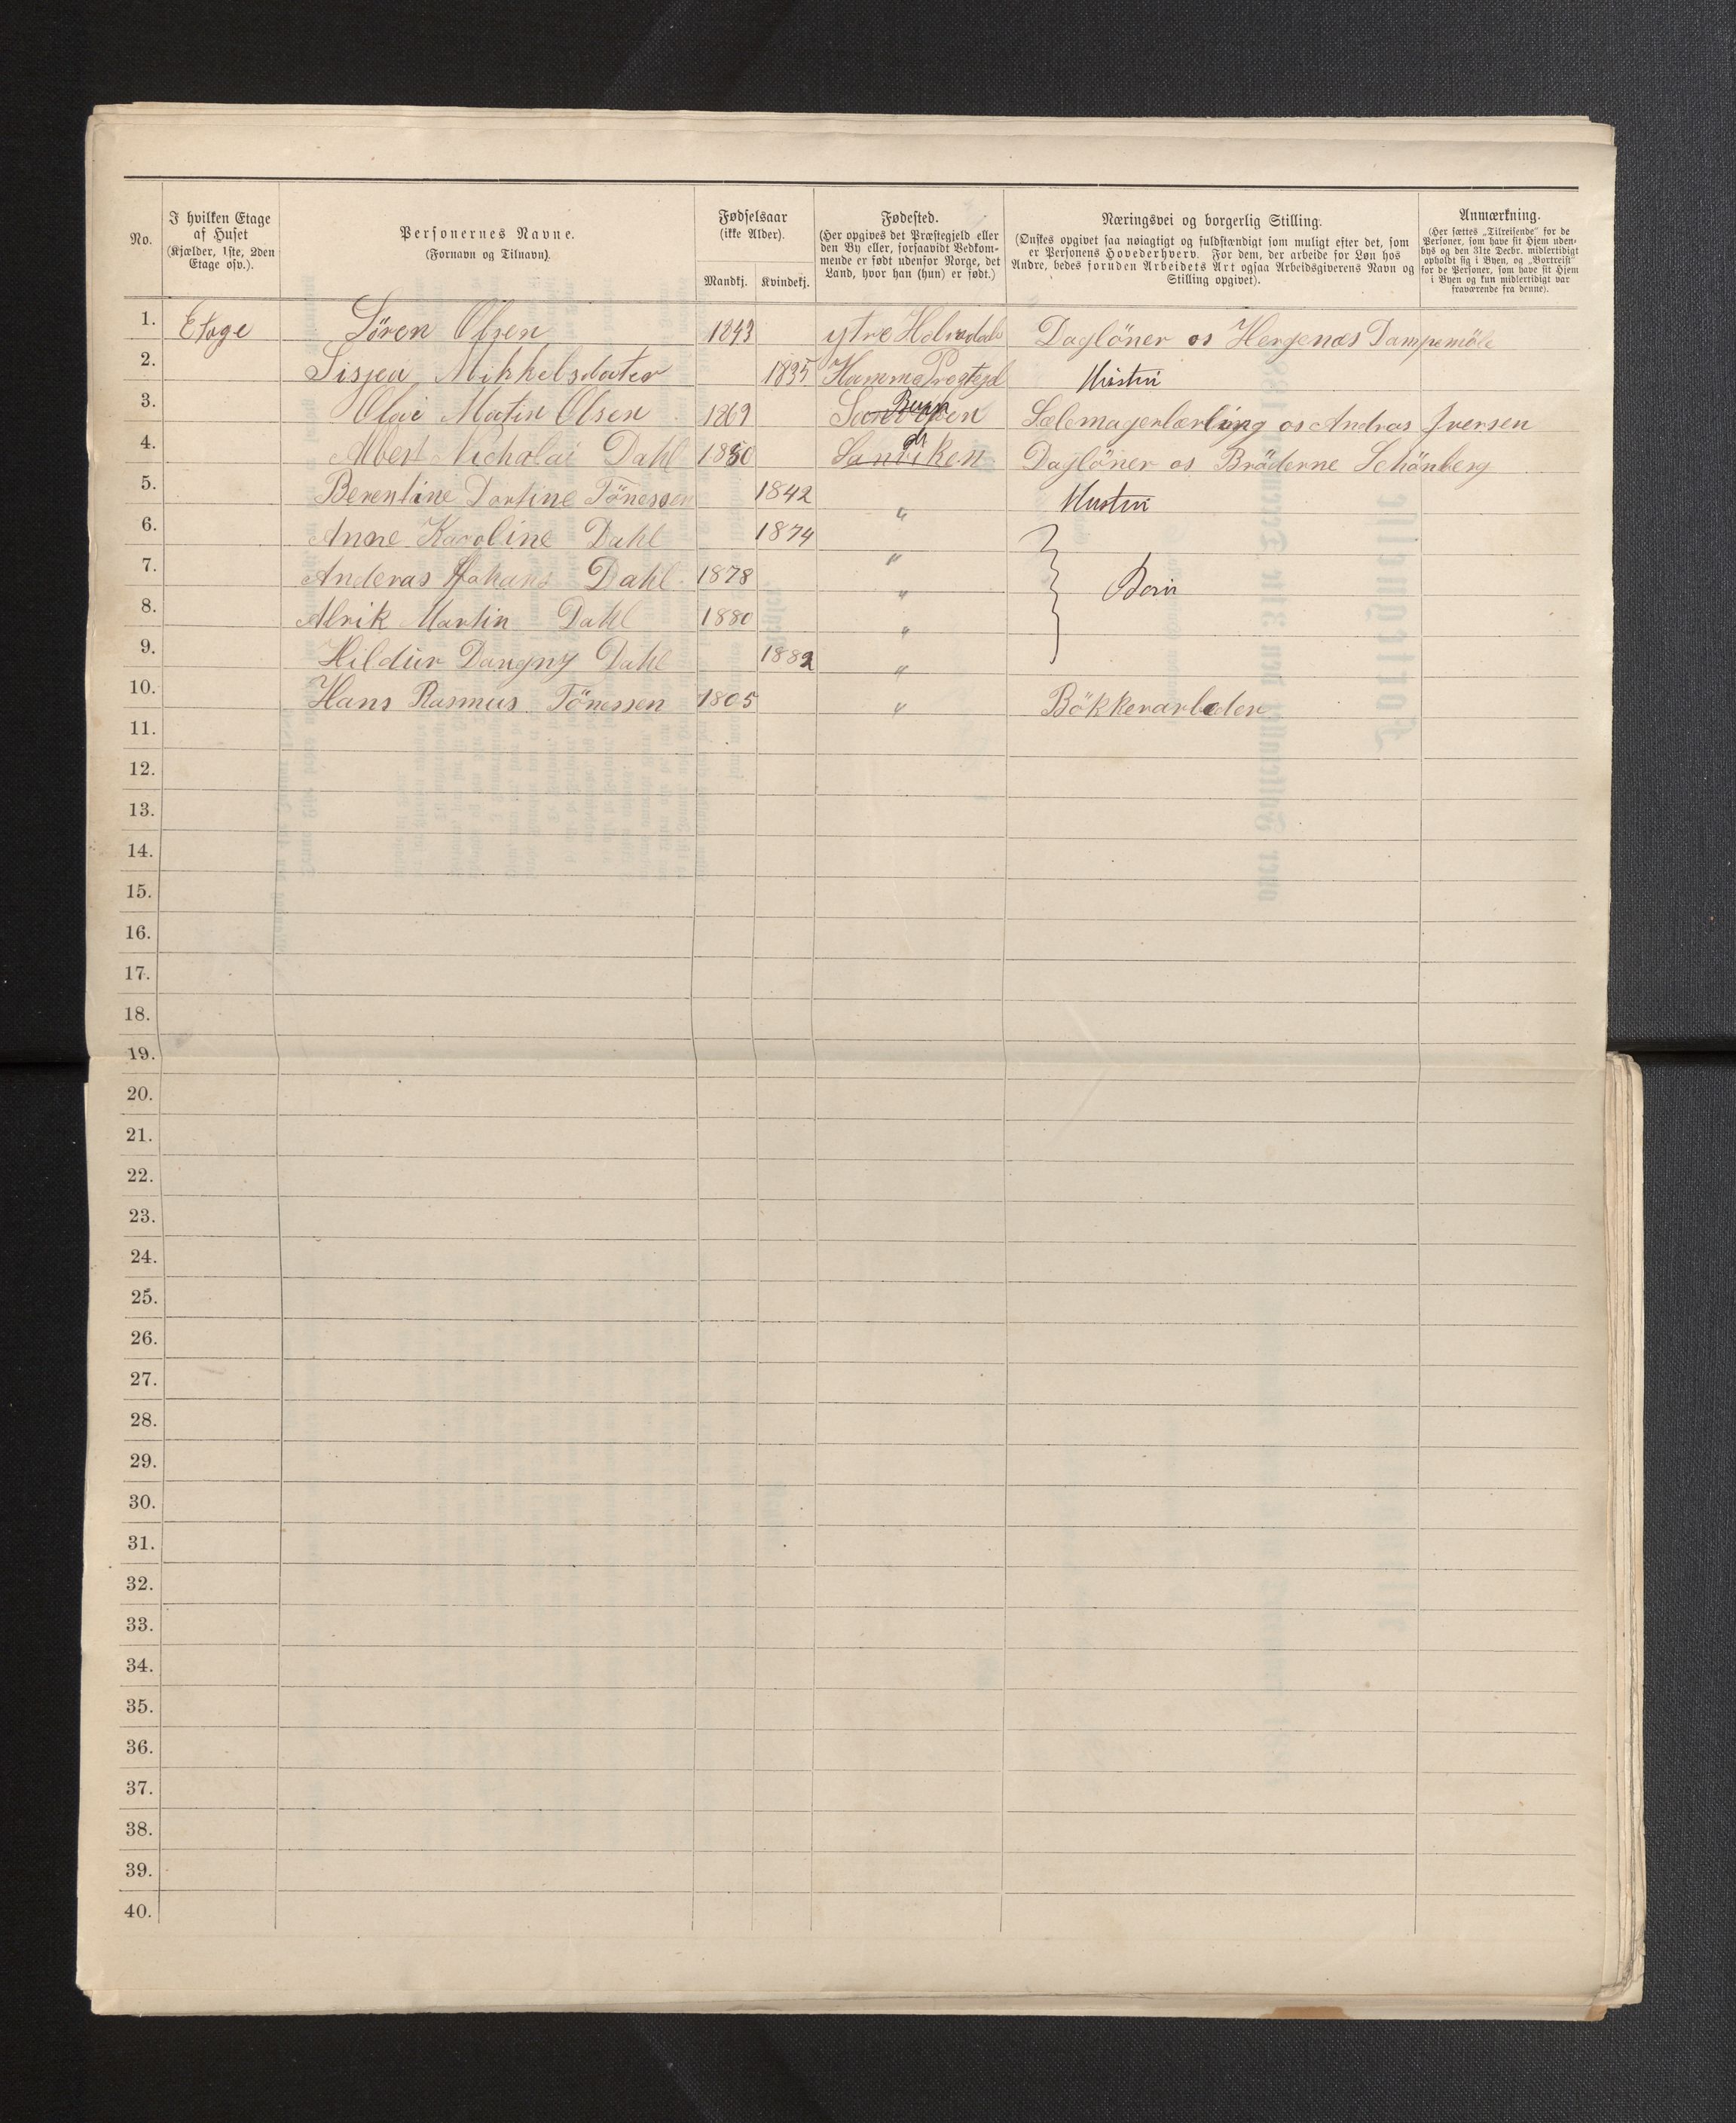 No.
I hvilken Etage
af Huset
(Kjælder, 1ste, 2den
Etage osv.).
Personernes Navne.
(Fornavn og Tilnavn).
Fødselsaar
(ikke Alder).
Mandkj. Kvindekj.
Fødested.
(Her opgives det Præstegjeld eller
den By eller, forsaavidt Vedkom-
mende er født udenfor Norge, det
Land, hvor han (hun) er født.)
Næringsvei og borgerlig Stilling.
(Ønskes opgivet saa nøiagtigt og fuldstændigt som muligt efter det, som
er Personens Hovederhverv. For dem, der arbeide for Løn hos
Andre, bedes foruden Arbeidets Art ogsaa Arbeidsgiverens Navn og
Stilling opgivet).
Anmærkning.
(Her sættes „Tilreisende" for de
Personer, som have sit Hjem uden-
bys og den 31te Decbr. midlertidigt
opholdt sig i Byen, og „Bortreist"
for de Personer, som have sit Hjem
i Byen og kun midlertidigt var
fraværende fra denne).
1. Etage Sören Olsen 1843 ytre Holmdals Daglöner os Hergenæs Dampemöle
2. Sisjea Mikkelsdater 1835 Hamme Pregtejel Hustru
3. Olai Matin Olsen 1869 Sandviken Bergen Sælemagerlærling os Andras Iversen
4. Albert Nicholai Dahl 1850 Sanviken do Daglöner os Bröderne Schönberg
5. Berentine Dortine Tönessen 1842 " Hustru
6. Anne Karoline Dahl 1874 "
7. Anderas Johans Dahl 1878 " Börn
8. Alrik Martin Dahl 1880 "
9. Hildur Dangny Dahl 1882 "
10. Hans Rasmus Tönessen 1805 " Bökkerarbeder
11.
12.
13.
14.
15.
16.
17.
18.
19.
20.
21.
22.
23.
24.
25.
26.
27.
28.
29.
30.
31.
32.
33.
34.
35.
36.
37.
38.
39.
40.